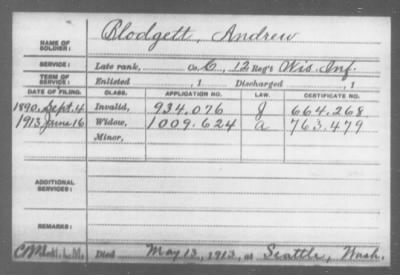 NAME OF SOLDIER: Blodgett, Andrew
SERVICE: Late rank, Co. C, 12 Reg't Wis. Inf.
TERM OF SERVICE: Enlisted , 1 Discharged , 1
DATE OF FILING. CLASS. APPLICATION NO. LAW. CERTIFICATE NO.
1890, Sept. 4 Invalid, 934,076 J 664,268
1913, June 16 Widow, 1009.624 a 763,479
Minor,
ADDITIONAL SERVICES:
REMARKS:
Died May 13, 1913, at Seattle, Wash.